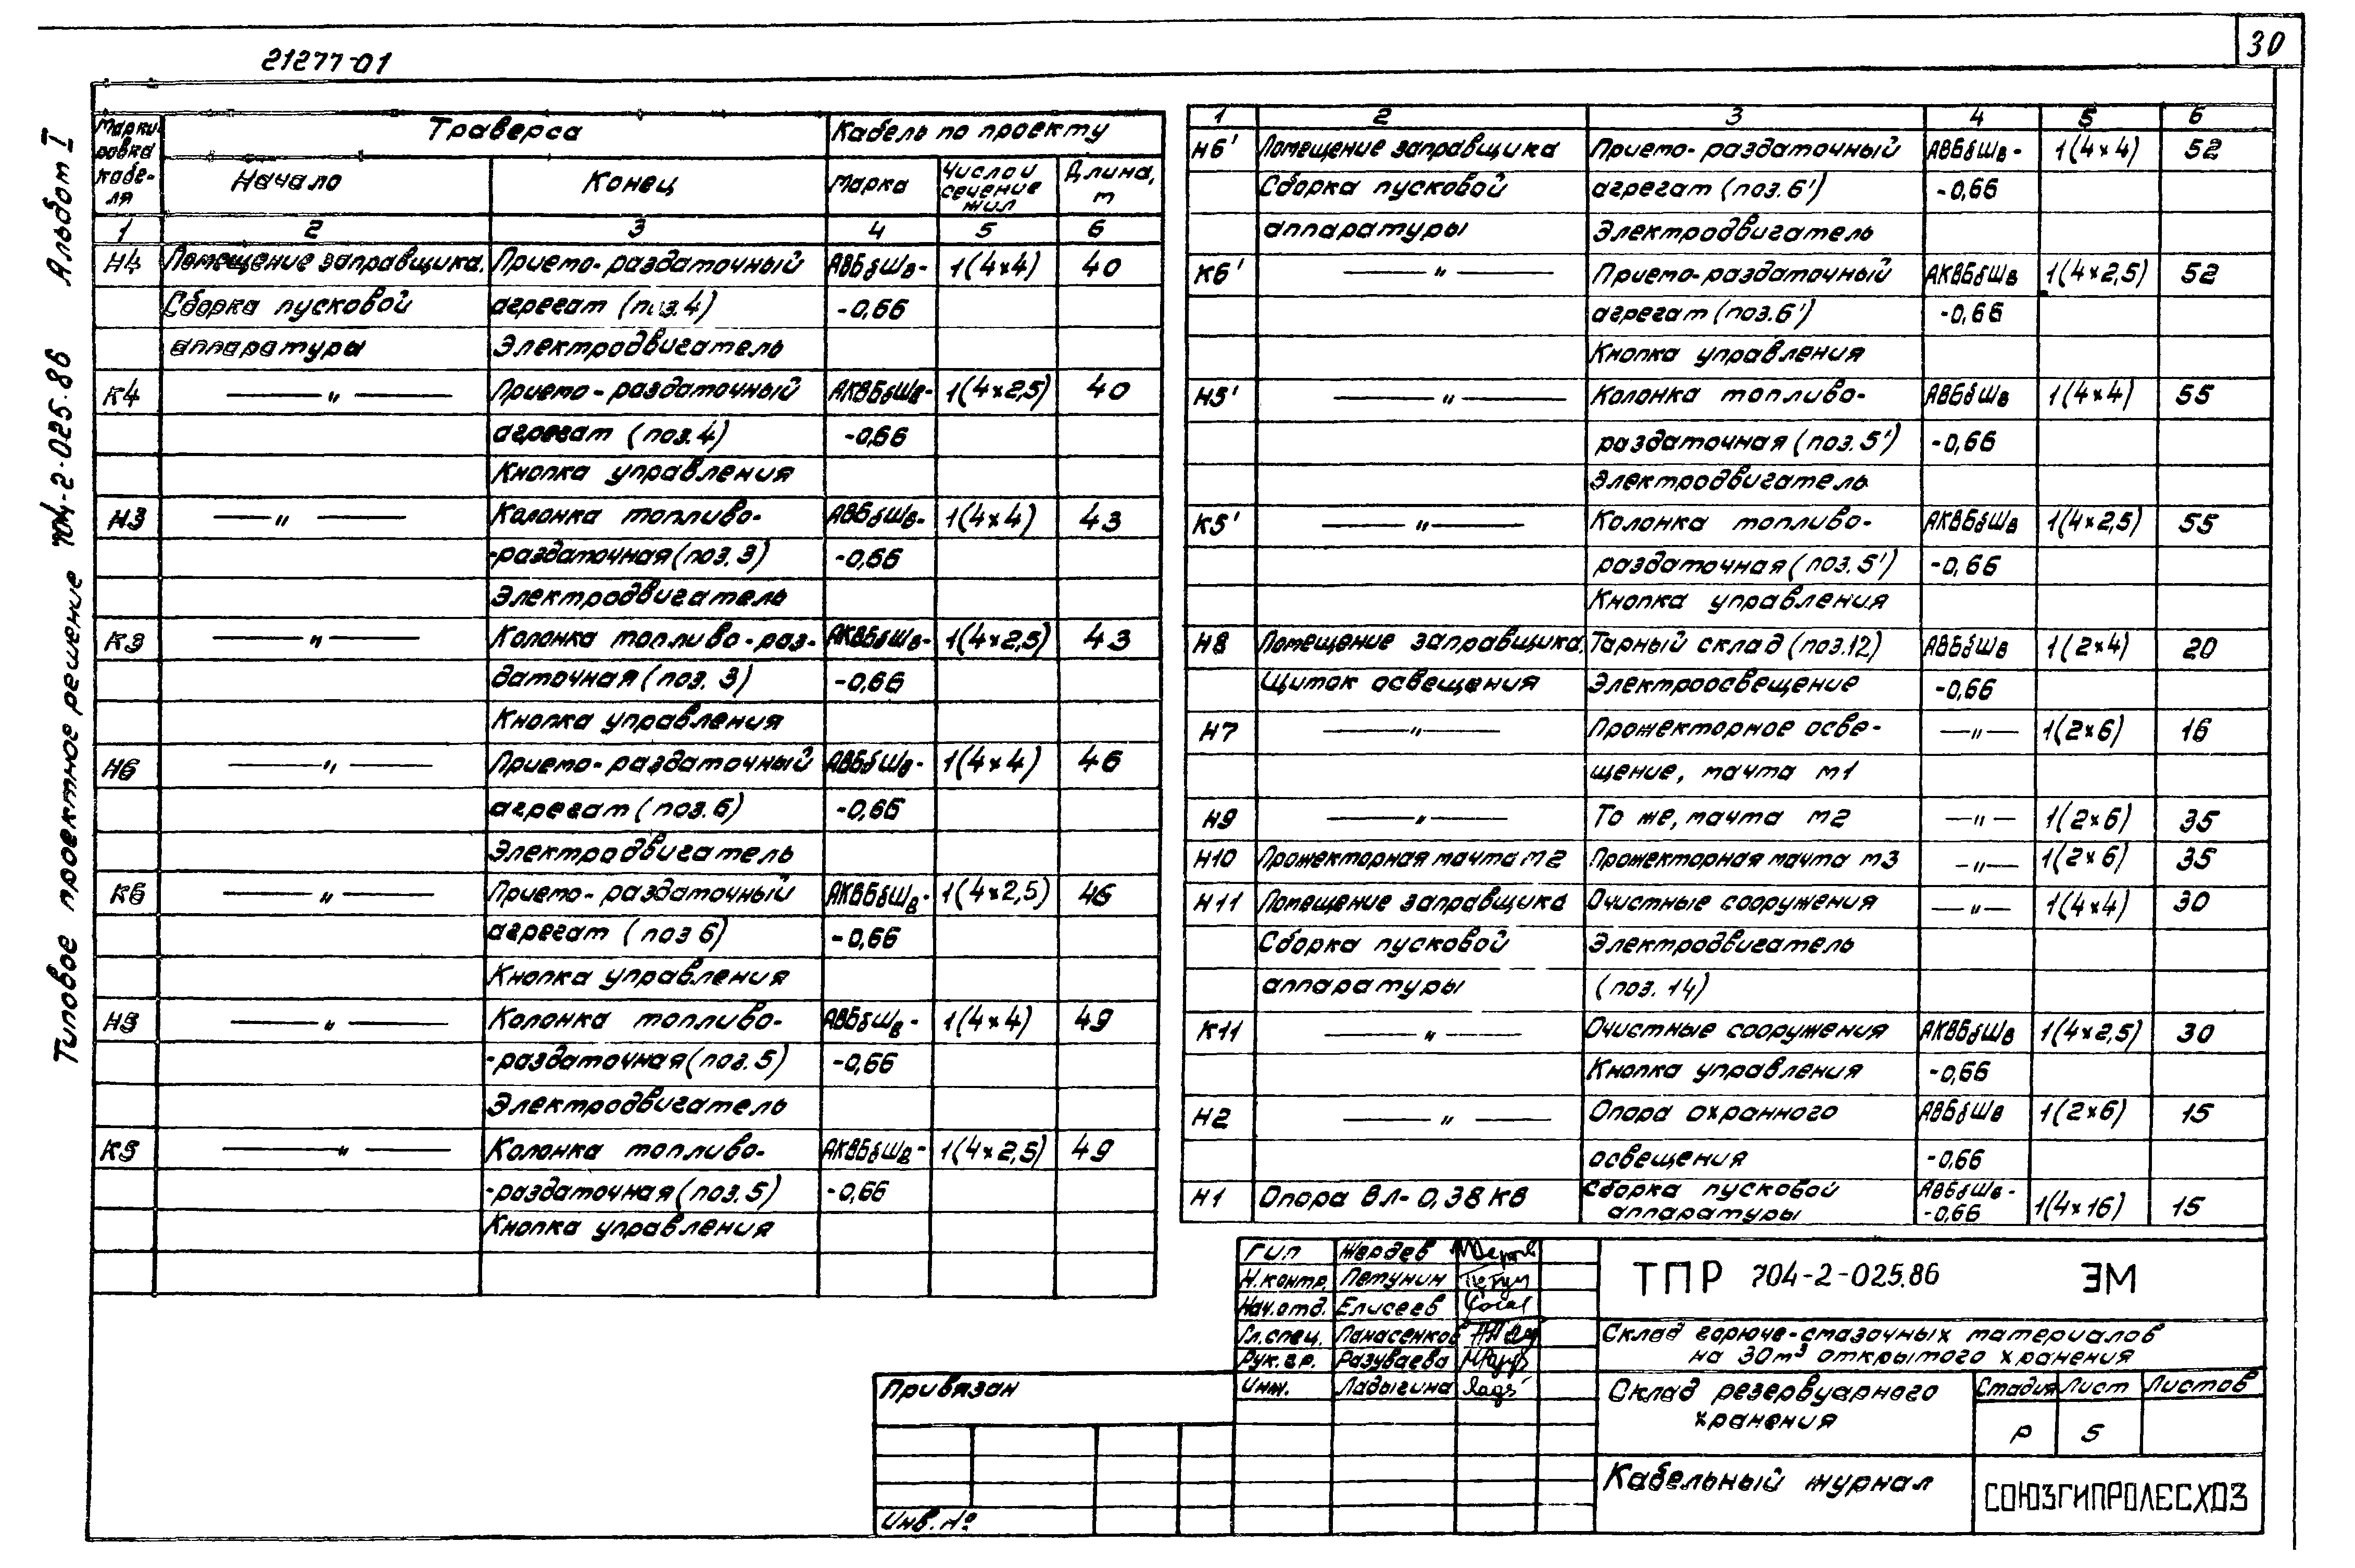 30
21277-01
Типовое проектное решение 704-2-025.86 Альбом I
Марки- Траверса Кабель по проекту
ровка
кабе- Начало Конец Марка Число и Длина,
ля сечение м
жил
1 2 3 4 5 6
Н4 Помещение заправщика. Приемо-раздаточный АВБбШв- 1(4×4) 40
Сборка пусковой агрегат (поз.4) -0,66
аппаратуры Электродвигатель
К4 —"— Приемо-раздаточный АКВБбШв- 1(4×2,5) 40
агрегат (поз.4) -0,66
Кнопка управления
Н3 —"— Колонка топливо- АВБбШв- 1(4×4) 43
-раздаточная (поз. 3) -0,66
Электродвигатель
К3 —"— Колонка топливо-раз- АКВБбШв- 1(4×2,5) 43
даточная (поз. 3) -0,66
Кнопка управления
Н6 —"— Приемо-раздаточный АВБбШв- 1(4×4) 46
агрегат (поз.6) -0,66
Электродвигатель
К6 —"— Приемо-раздаточный АКВБбШв- 1(4×2,5) 46
агрегат (поз 6) -0,66
Кнопка управления
Н5 —"— Колонка топливо- АВБбШв- 1(4×4) 49
-раздаточная (поз.5) -0,66
Электродвигатель
К5 —"— Колонка топливо- АКВБбШв- 1(4×2,5) 49
-раздаточная (поз.5) -0,66
Кнопка управления
1 2 3 4 5 6
Н6' Помещение заправщика Приемо-раздаточный АВБбШв- 1(4×4) 52
Сборка пусковой агрегат (поз.6') -0,66
аппаратуры Электродвигатель
К6' —"— Приемо-раздаточный АКВБбШв 1(4×2,5) 52
агрегат (поз.6') -0,66
Кнопка управления
Н5' —"— Колонка топливо- АВБбШв 1(4×4) 55
раздаточная (поз.5') -0,66
Электродвигатель
К5' —"— Колонка топливо- АКВБбШв 1(4×2,5) 55
раздаточная (поз.5') -0,66
Кнопка управления
Н8 Помещение заправщика. Тарный склад (поз.12) АВБбШв 1(2×4) 20
Щиток освещения Электроосвещение -0,66
Н7 —"— Прожекторное осве- —"— 1(2×6) 16
щение, мачта М1
Н9 —"— То же, мачта М2 —"— 1(2×6) 35
Н10 Прожекторная мачта М2 Прожекторная мачта М3 —"— 1(2×6) 35
Н11 Помещение заправщика Очистные сооружения —"— 1(4×4) 30
Сборка пусковой Электродвигатель
аппаратуры (поз. 14)
К11 —"— Очистные сооружения АКВБбШв 1(4×2,5) 30
Кнопка управления -0,66
Н2 —"— Опора охранного АВБбШв 1(2×6) 15
освещения -0,66
Н1 Опора ВЛ-0,38 кВ Сборка пусковой АВБбШв- 1(4×16) 15
аппаратуры -0,66
ГИП Жердев
Н.контр. Петунин
Нач.отд. Елисеев
Гл.спец. Панасенков
Рук.гр. Разуваева
Инж. Ладыгина
ТПР 704-2-025.86 ЭМ
Склад горюче-смазочных материалов
на 30м³ открытого хранения
Склад резервуарного
хранения
Стадия Лист Листов
Р 5
Кабельный журнал
СОЮЗГИПРОЛЕСХОЗ
Привязан
Инв.№